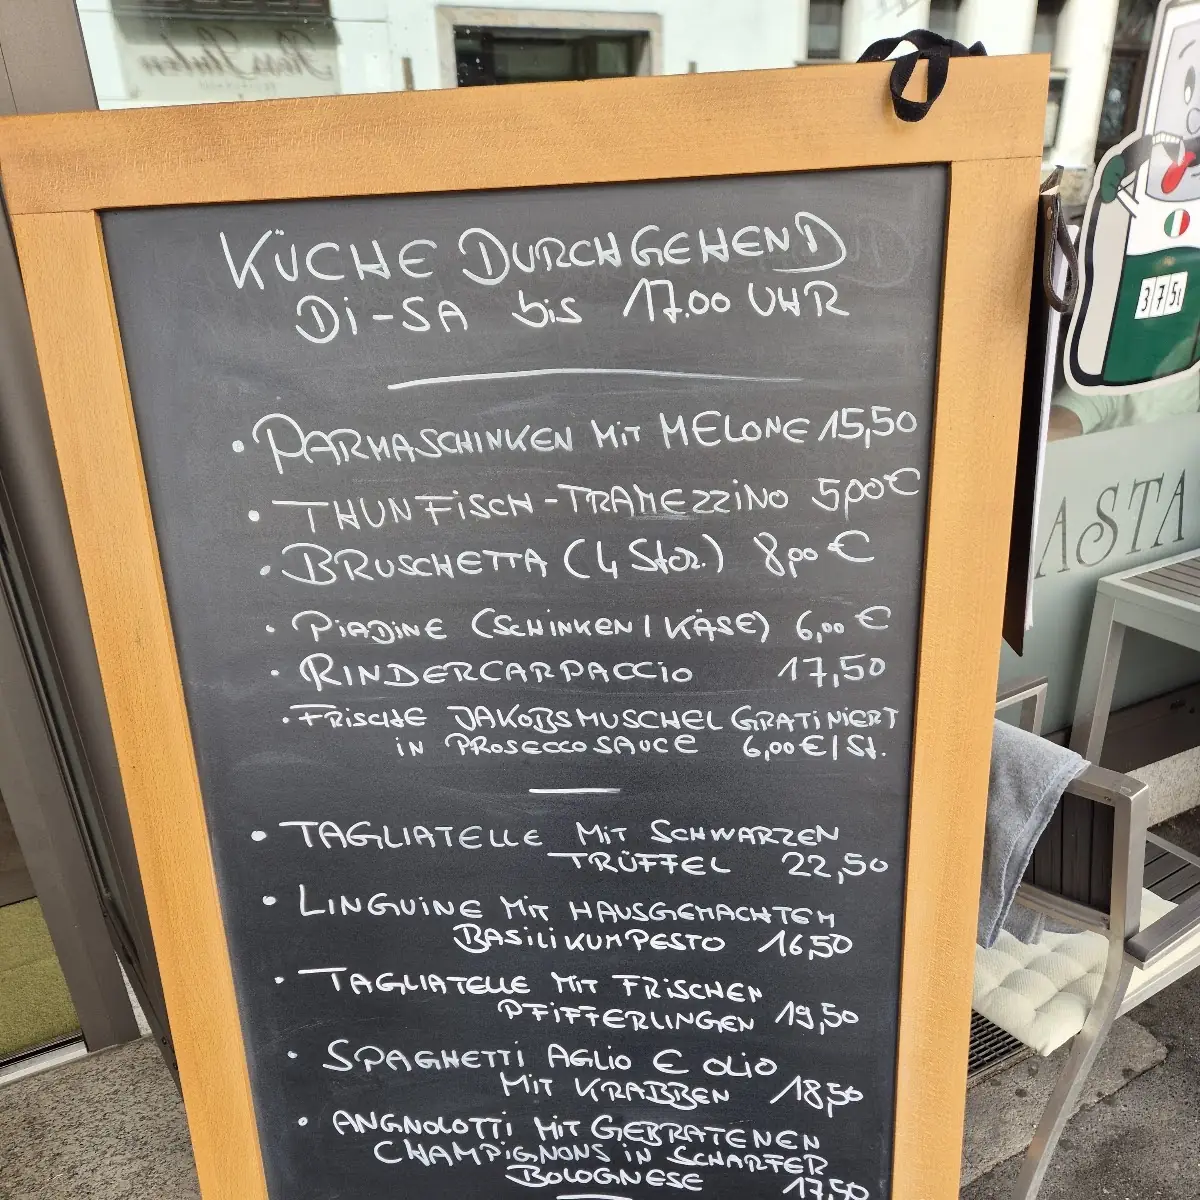 KÜCHE DURCHGEHEND
Di-SA bis 17.00 UHR
• PARMASCHINKEN MiT MELONE 15,50
• THUNFiSCH-TRAMEZZINO 5,00€
• BRUSCHETTA (4 Stk.) 8,00€
• PiADINE (SCHiNKEN/KÄSE) 6,00€
• RINDERCARPACCiO 17,50
• FRiSCHE JAKOBSMUSCHEL GRATiNiERT
iN PROSECCOSAUCE 6,00€/St.
• TAGLiATELLE MiT SCHWARZEN
TRÜFFEL 22,50
• LiNGUiNE MiT HAUSGEMACHTEM
BASiLiKUMPESTO 16,50
• TAGLiATELLE MiT FRiSCHEN
PFiFFERLiNGEN 19,50
• SPAGHETTi AGLiO E OLiO
MiT KRABBEN 18,50
• ANGNOLOTTi MiT GEBRATENEN
CHAMPiGNONS iN SCHARFER
BOLOGNESE 17,50
375t
ASTA